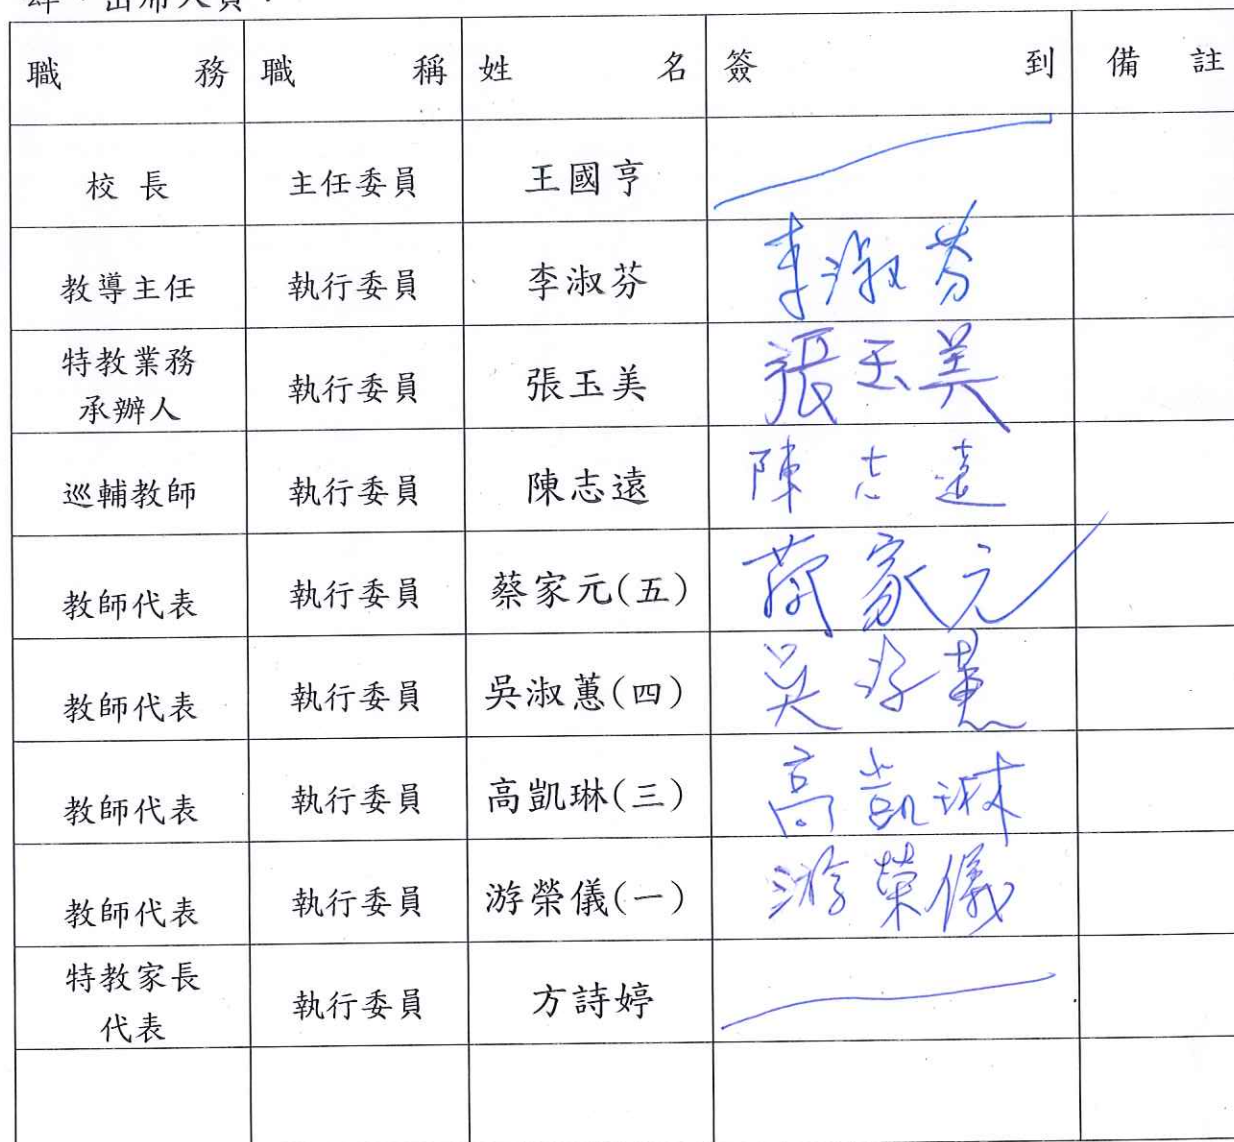 肆、出席人員：
職務 職稱 姓名 簽到 備註
校長 主任委員 王國亨
教導主任 執行委員 李淑芬 李淑芬
特教業務
承辦人 執行委員 張玉美 張玉美
巡輔教師 執行委員 陳志遠 陳志遠
教師代表 執行委員 蔡家元(五) 蔡家元
教師代表 執行委員 吳淑蕙(四) 吳淑蕙
教師代表 執行委員 高凱琳(三) 高凱琳
教師代表 執行委員 游榮儀(一) 游榮儀
特教家長
代表 執行委員 方詩婷